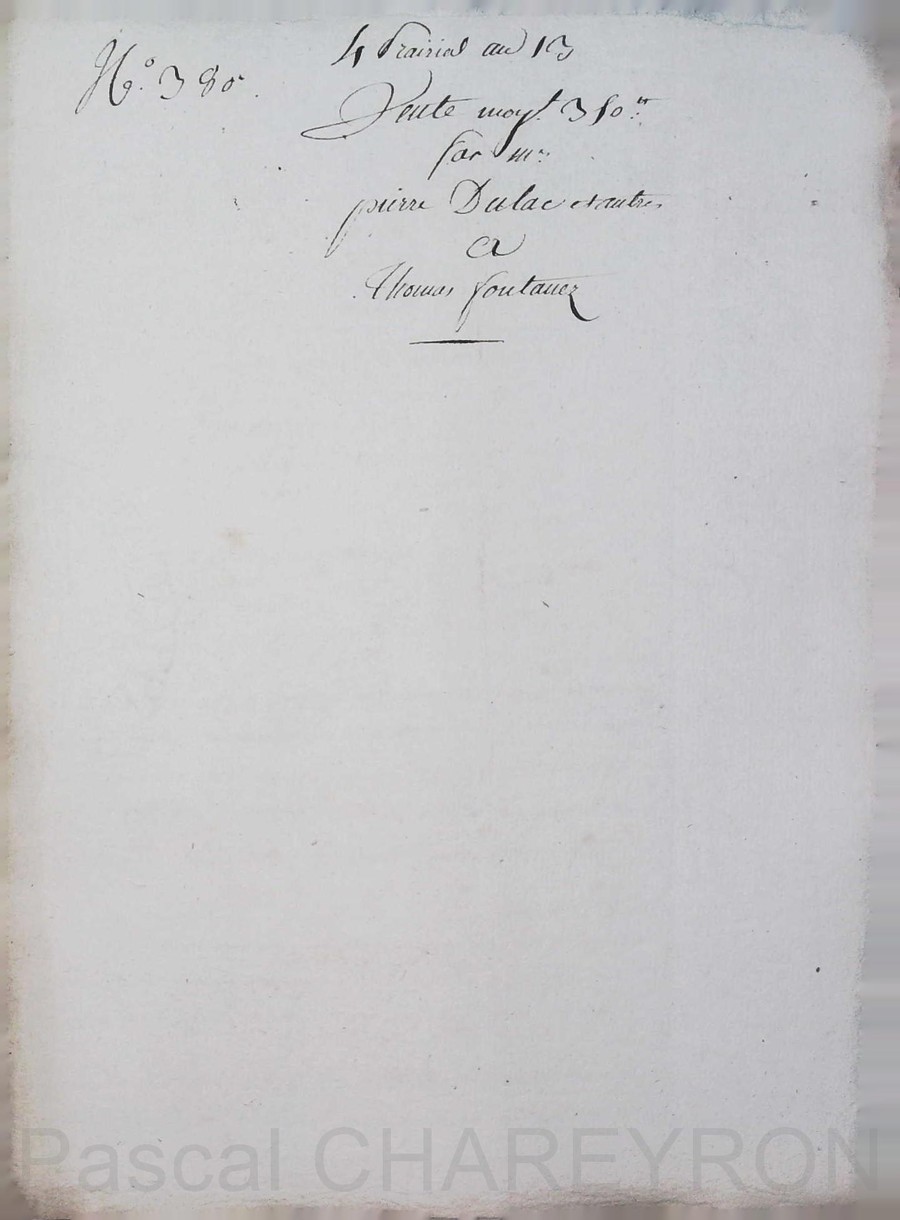 N.o 380.
4 Prairial an 13
Vente moyt. 350tt
par mrs
pierre Dulac et autres
a
Thomas fontanez
Pascal CHAREYRON